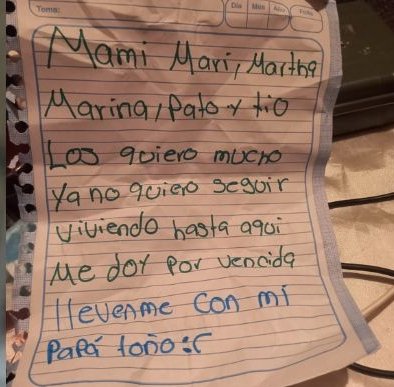 Tema:
Día Mes Año Folio
Mami Mari, Martha
Marina, Pato y tio
Los quiero mucho
Ya no quiero seguir
viviendo hasta aqui
Me doy por vencida
llevenme con mi
Papá toño :(